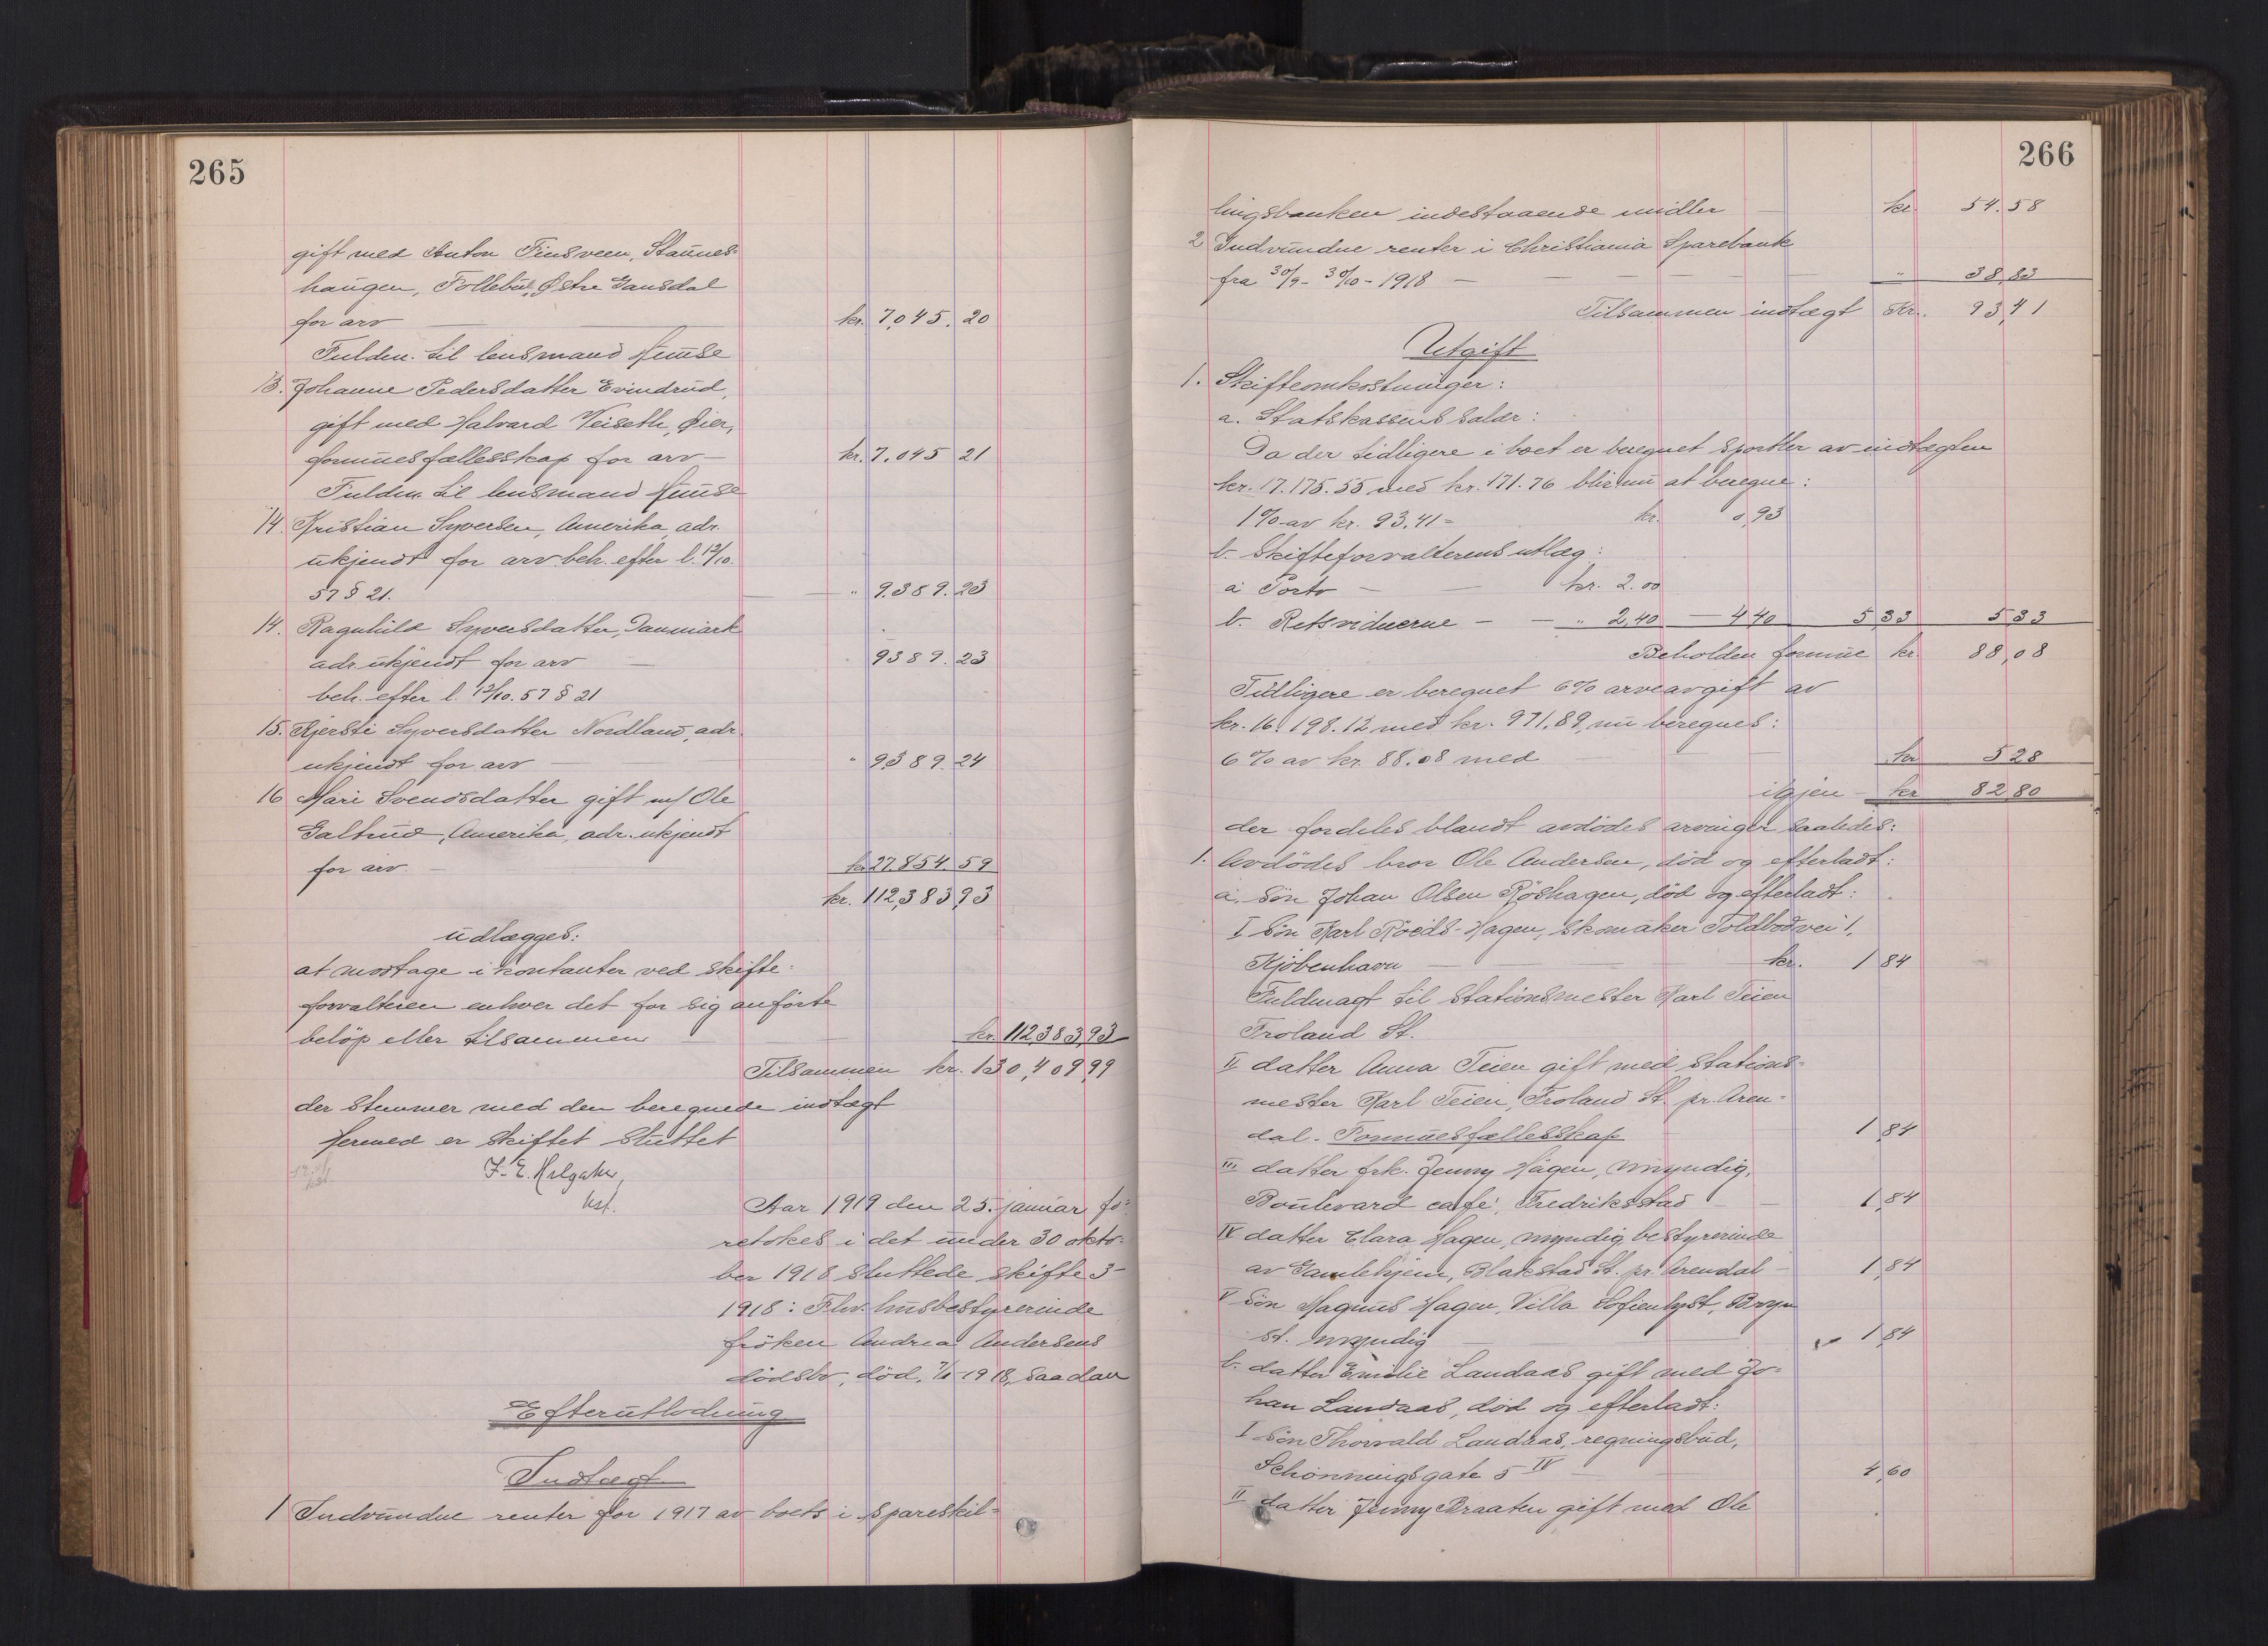 265
gift med Anton Finsveen, Staunes-
haugen, Follebu, Østre Gausdal
for arv kr. 7,045.20
Fuldm. til lensmand Huuse
13. Johanne Pedersdatter Evindrud,
gift med Halvard Veiseth, Øier,
formuesfællesskap for arv — kr. 7.045 21
Fuldm. til lensmand Huuse
14. Kristian Syversen, Amerika, adr.
ukjendt for arv beh. efter l. 12/10.
57 § 21. — " 9.389.23
14. Ragnhild Syversdatter, Danmark
adr. ukjendt for arv — 9389.23
beh. efter l. 12/10.57 § 21
15. Kjersti Syversdatter Nordland, adr.
ukjendt for arv — " 9389.24
16 Mari Svendsdatter gift m/ Ole
Galtrud, Amerika, adr. ukjendt
for arv. kr 27.854.59
kr. 112,383,93
udlægges:
at motage i kontanter ved skifte-
forvalteren enhver det for sig anförte
belöp eller tilsammen kr. 112,383,93
Tilsammen kr. 130,409,99
der stemmer med den beregnede indtægt
Hermed er skiftet sluttet
F. E. Helgaker
kst.
Aar 1919 den 25. januar fo-
retokes i det under 30 okto-
ber 1918 sluttede skifte 3-
1918: Fhv. husbestyrerinde
fröken Andrea Andersens
dödsbo, död 7/1 1918, saadan
Efterutlodning
Indtægt
1 Indvundne renter for 1917 av boets i Spareskil-
266
lingsbanken indestaaende midler — kr. 54.58
2 Indvundne renter i Christiania Sparebank
fra 30/9 - 30/10 - 1918 — " 38,83
Tilsammen indtægt Kr. 93,41
Utgift
1. Skifteomkostninger:
a. Statskassens salær:
Da der tidligere i boet er beregnet sportler av indtægten
kr. 17.175.55 med kr. 171.76 blir nu at beregne:
1% av kr. 93.41 = kr. 0,93
b. Skifteforvalterens utlæg:
a Porto — kr. 2.00
b. Retsvidnerne — — " 2,40 — 4 40 5,33 5,33
Beholden formue kr. 88,08
Tidligere er beregnet 6% arveavgift av
kr. 16.198.12 med kr. 971.89, nu beregnes:
6% av kr. 88.08 med kr 5 28
igjen — kr 82,80
der fordeles blandt avdödes arvinger saaledes:
1. Avdödes bror Ole Andersen, död og efterladt:
a. sön Johan Olsen Röshagen, död og efterladt:
I Sön Karl Röeds-Hagen, skomaker Toldbodvei 1,
Kjöbenhavn — kr. 1 84
Fuldmagt til stationsmester Karl Teien
Froland St.
II datter Anna Teien gift med stations-
mester Karl Teien, Froland St. pr. Aren-
dal. Formuesfællesskap 1,84
III datter frk. Jenny Hagen, myndig,
Boulevard café, Fredriksstad — 1,84
IV datter Clara Hagen, myndig bestyrerinde
av Gamlehjem, Blakstad St. pr. Arendal — 1,84
V Sön Magnus Hagen, Villa Sofienlyst, Bryn
St. myndig — 1,84
b. datter Emilie Landaas gift med Jo-
han Landaas, död og efterladt:
I Sön Thorvald Landaas, regningsbud,
Schönningsgate 5 IV — 4,60
II datter Jenny Braaten gift med Ole